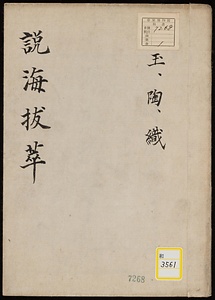 玉、陶、織
説海拔萃
7268
1
和
3561
7268